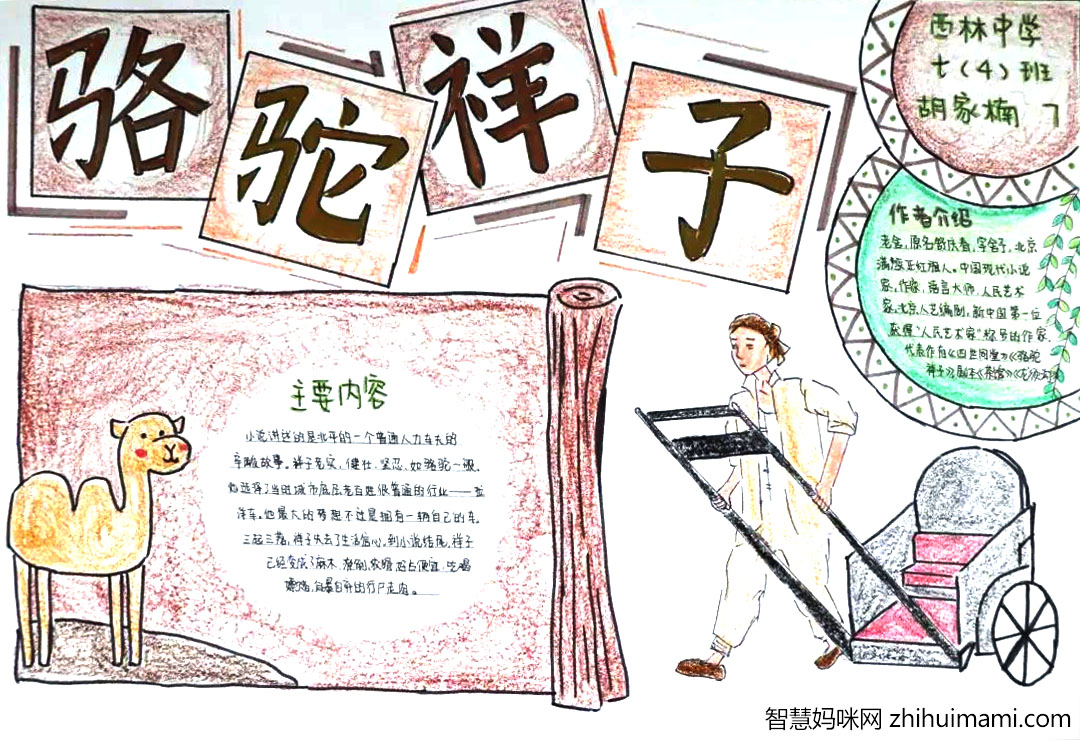 骆驼祥子
西林中学
七（4）班
胡家楠 7
作者介绍
老舍，原名舒庆春，字舍予，北京
满族正红旗人。中国现代小说
家，作家，语言大师，人民艺术
家，北京人艺编剧，新中国第一位
获得“人民艺术家”称号的作家，
代表作有《四世同堂》《骆驼
祥子》剧本《茶馆》《龙须沟》
主要内容
小说讲述的是北平的一个普通人力车夫的
辛酸故事。祥子老实，健壮，坚忍，如骆驼一般。
他选择了当时城市底层老百姓很普通的行业——拉
洋车。他最大的梦想不过是拥有一辆自己的车。
三起三落，祥子失去了生活信心。到小说结尾，祥子
已经变成了麻木，潦倒，狡猾，好占便宜，吃喝
嫖赌，自暴自弃的行尸走肉。
智慧妈咪网 zhihuimami.com